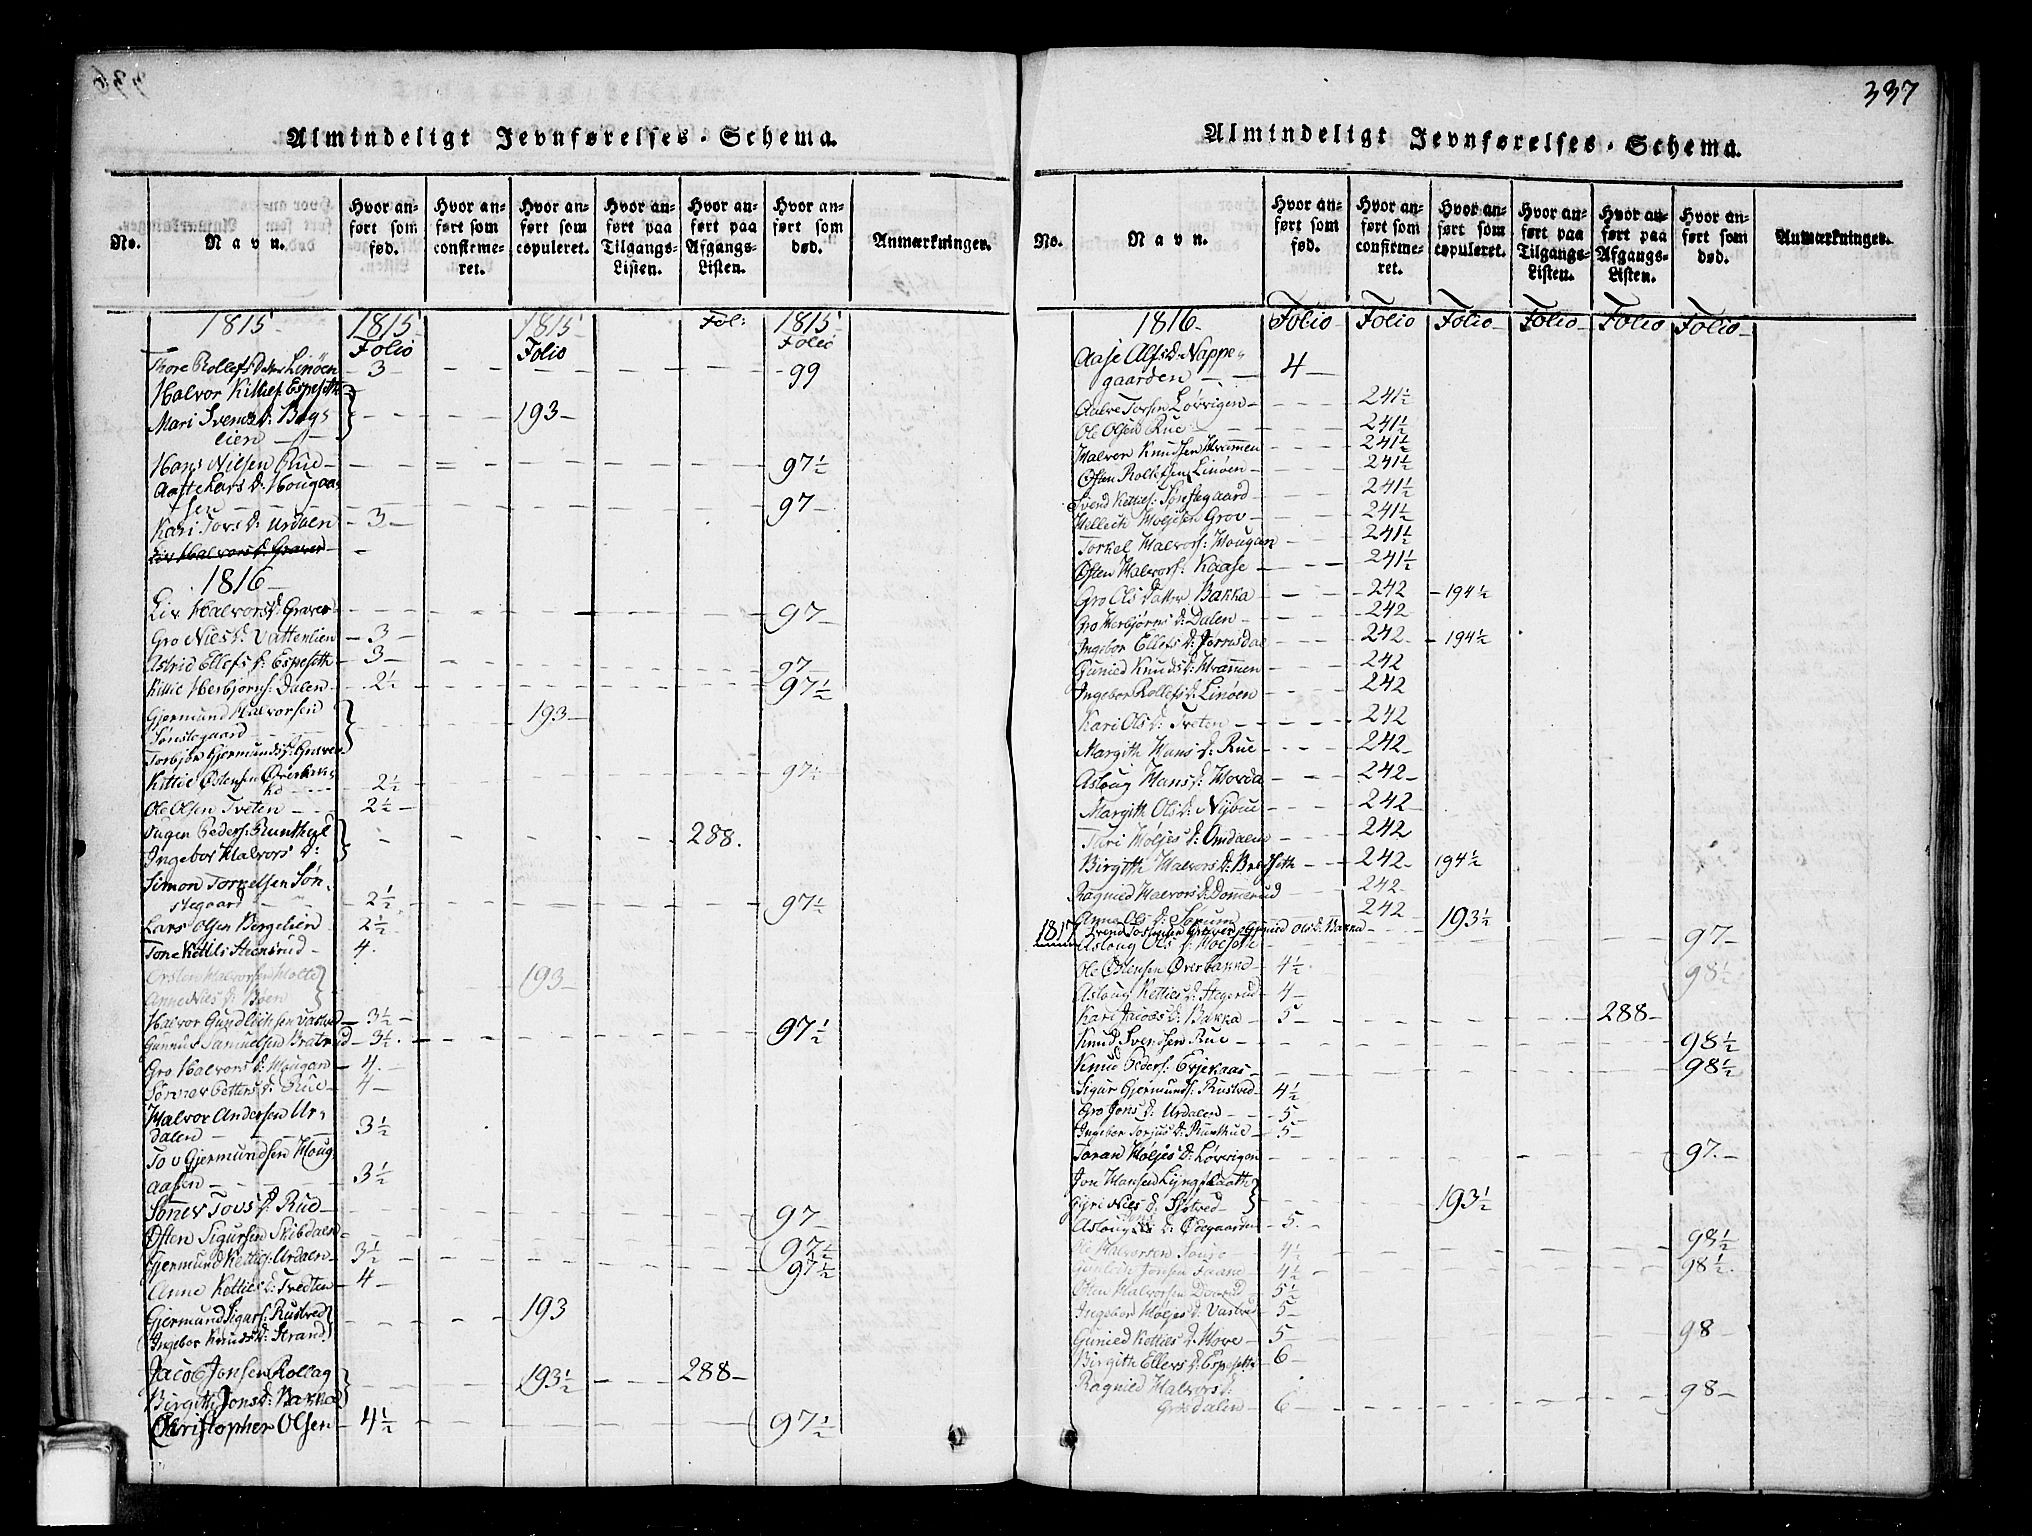 336
Almindeligt Jevnførelses-Schema.
No.
Navn.
Hvor anført som fød.
Hvor anført som confirmeret.
Hvor anført som copuleret.
Hvor anført paa Tilgangs-Listen.
Hvor anført paa Afgangs-Listen.
Hvor anført som død.
Anmærkninger.
1815 1815 1815 Fol: 1815
Folio Folio Folio
Thore Rollefs Datter Linöen 3 99
Halvor Kittils: Espeseth
Mari Svends D: Bøgs 193
lien
Hans Nilsen Rue 97½
Aaste Lars D: Hougaa
sen 97
Kari Tovs D: Urdalen 3
Liv Halvors D: Graver
1816
Liv Halvors D: Graver 97
Gro Niels D: Vattenlien 3
Astrid Ellefs D: Espeseth 3 97
Kittil Herbjørns: Dalen 2½ 97½
Gjermund Halvorsen 193
Sønstegaard
Torbjør Gjermunds D: Graver
Kittil Østensen Øverbak 97½
ke 2½
Ole Olsen Tveten 2½
Peders: Runthul 288.
Ingebor Halvors D:
Simon Torkelsen Søn
stegaard 2½ 97½
Lars Olsen Bergelien 2½
Tone Kittils Steensrud 4.
Halvorsen Holte 193
Anne Niels D: Bøen
Halvor Gundlechsen Vasved 3½ 97½
Gunnul Samuelsen Bratrud 3½.
Gro Halvors D: Hougan 4.
Sønnov Petters D: Rue 4
Halvor Andersen Ur
dalen 3½
Tov Gjermundsen Houg
aasen 3½
Sønev Tovs D: Rud 97
Østen Sigursen Skibdalen 97½
Gjermund Kettils: Urdalen 3½ 97½
Anne Kettils D: Tvedten 4
Gjermund Sigurs: Rustved 193
Ingebor Knuds D: Strand
Jacob Jonsen Rollag 193½ 288
Birgith Jons D: Bakka
Christopher Olsen 4½ 97½
337
Almindeligt Jevnførelses-Schema.
No.
Navn.
Hvor anført som fød.
Hvor anført som confirmeret.
Hvor anført som copuleret.
Hvor anført paa Tilgangs-Listen.
Hvor anført paa Afgangs-Listen.
Hvor anført som død.
Anmærkninger.
1816 Folio Folio Folio Folio Folio Folio
Aase Alfs D: Nappe
gaarden 4
Aalve Torsen Løvrigen 241½
Ole Olsen Rue 241½
Halvor Knudsen Hrammen 241½
Østen Rollefsen Linöen 241½
Svend Kettils: Sønstegaard 241½
Hellech Holjesen Grov 241½
Torkel Halvors: Hougan 241½
Østen Halvors: Kaase 241½
Gro Ols Datter Bakka 242 194½
Gro Herbjørns D: Dalen 242
Ingebor Ellefs D: 242 194½
Gunild Knuds D: Hrammen 242
Ingebor Rollefs D: Linöen 242
Kari Ols D: Tveten 242
Margith Hans D: Rue 242
Asloug Hans D: Hovda 242
Margith Ols D: Nybue 242
Turi Holjes D: Omdalen 242
Birgith Halvors D: 242 194½
Ragnild Halvors D: Dommerud 242
Anne Ols D: Sorum 242 193½
1817 Svend Graver, Gunild Ols D: Bakka
Asloug Ols D: 97
Ole Østensen Øverbakke 4½ 98½
Asloug Kettils D: Stegerud 4
Kari Jacobs D: Bakka 5 288
Knud Svendsen Rue 98½
Knud Peders: Evjekaas 98½
Sigur Gjermunds: Rustved 4½
Gro Jons D: Urdalen 5
Ingebor Torjus D: Runthul 5
Toran Holjes D: Løvrigen 97.
Jon Hansen Lyngflaath 193½
Niels D: Sjøtved
Asloug D: Ødegaarden 5.
Ole Halvorsen 4½ 98½
Gunlech Jonsen Faane 4½ 98½.
Østen Halvorsen 5½
Ingebor Holjes D: Vasved 5
Gunild Kettils D: Hove 5 98
Birgith Ellefs D: Espeseth 6
Ragnild Halvors D:
Grosdalen 6 98